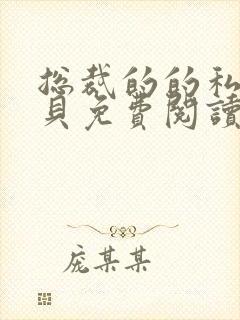 总裁的的私
貝免費閱讀
庞某某